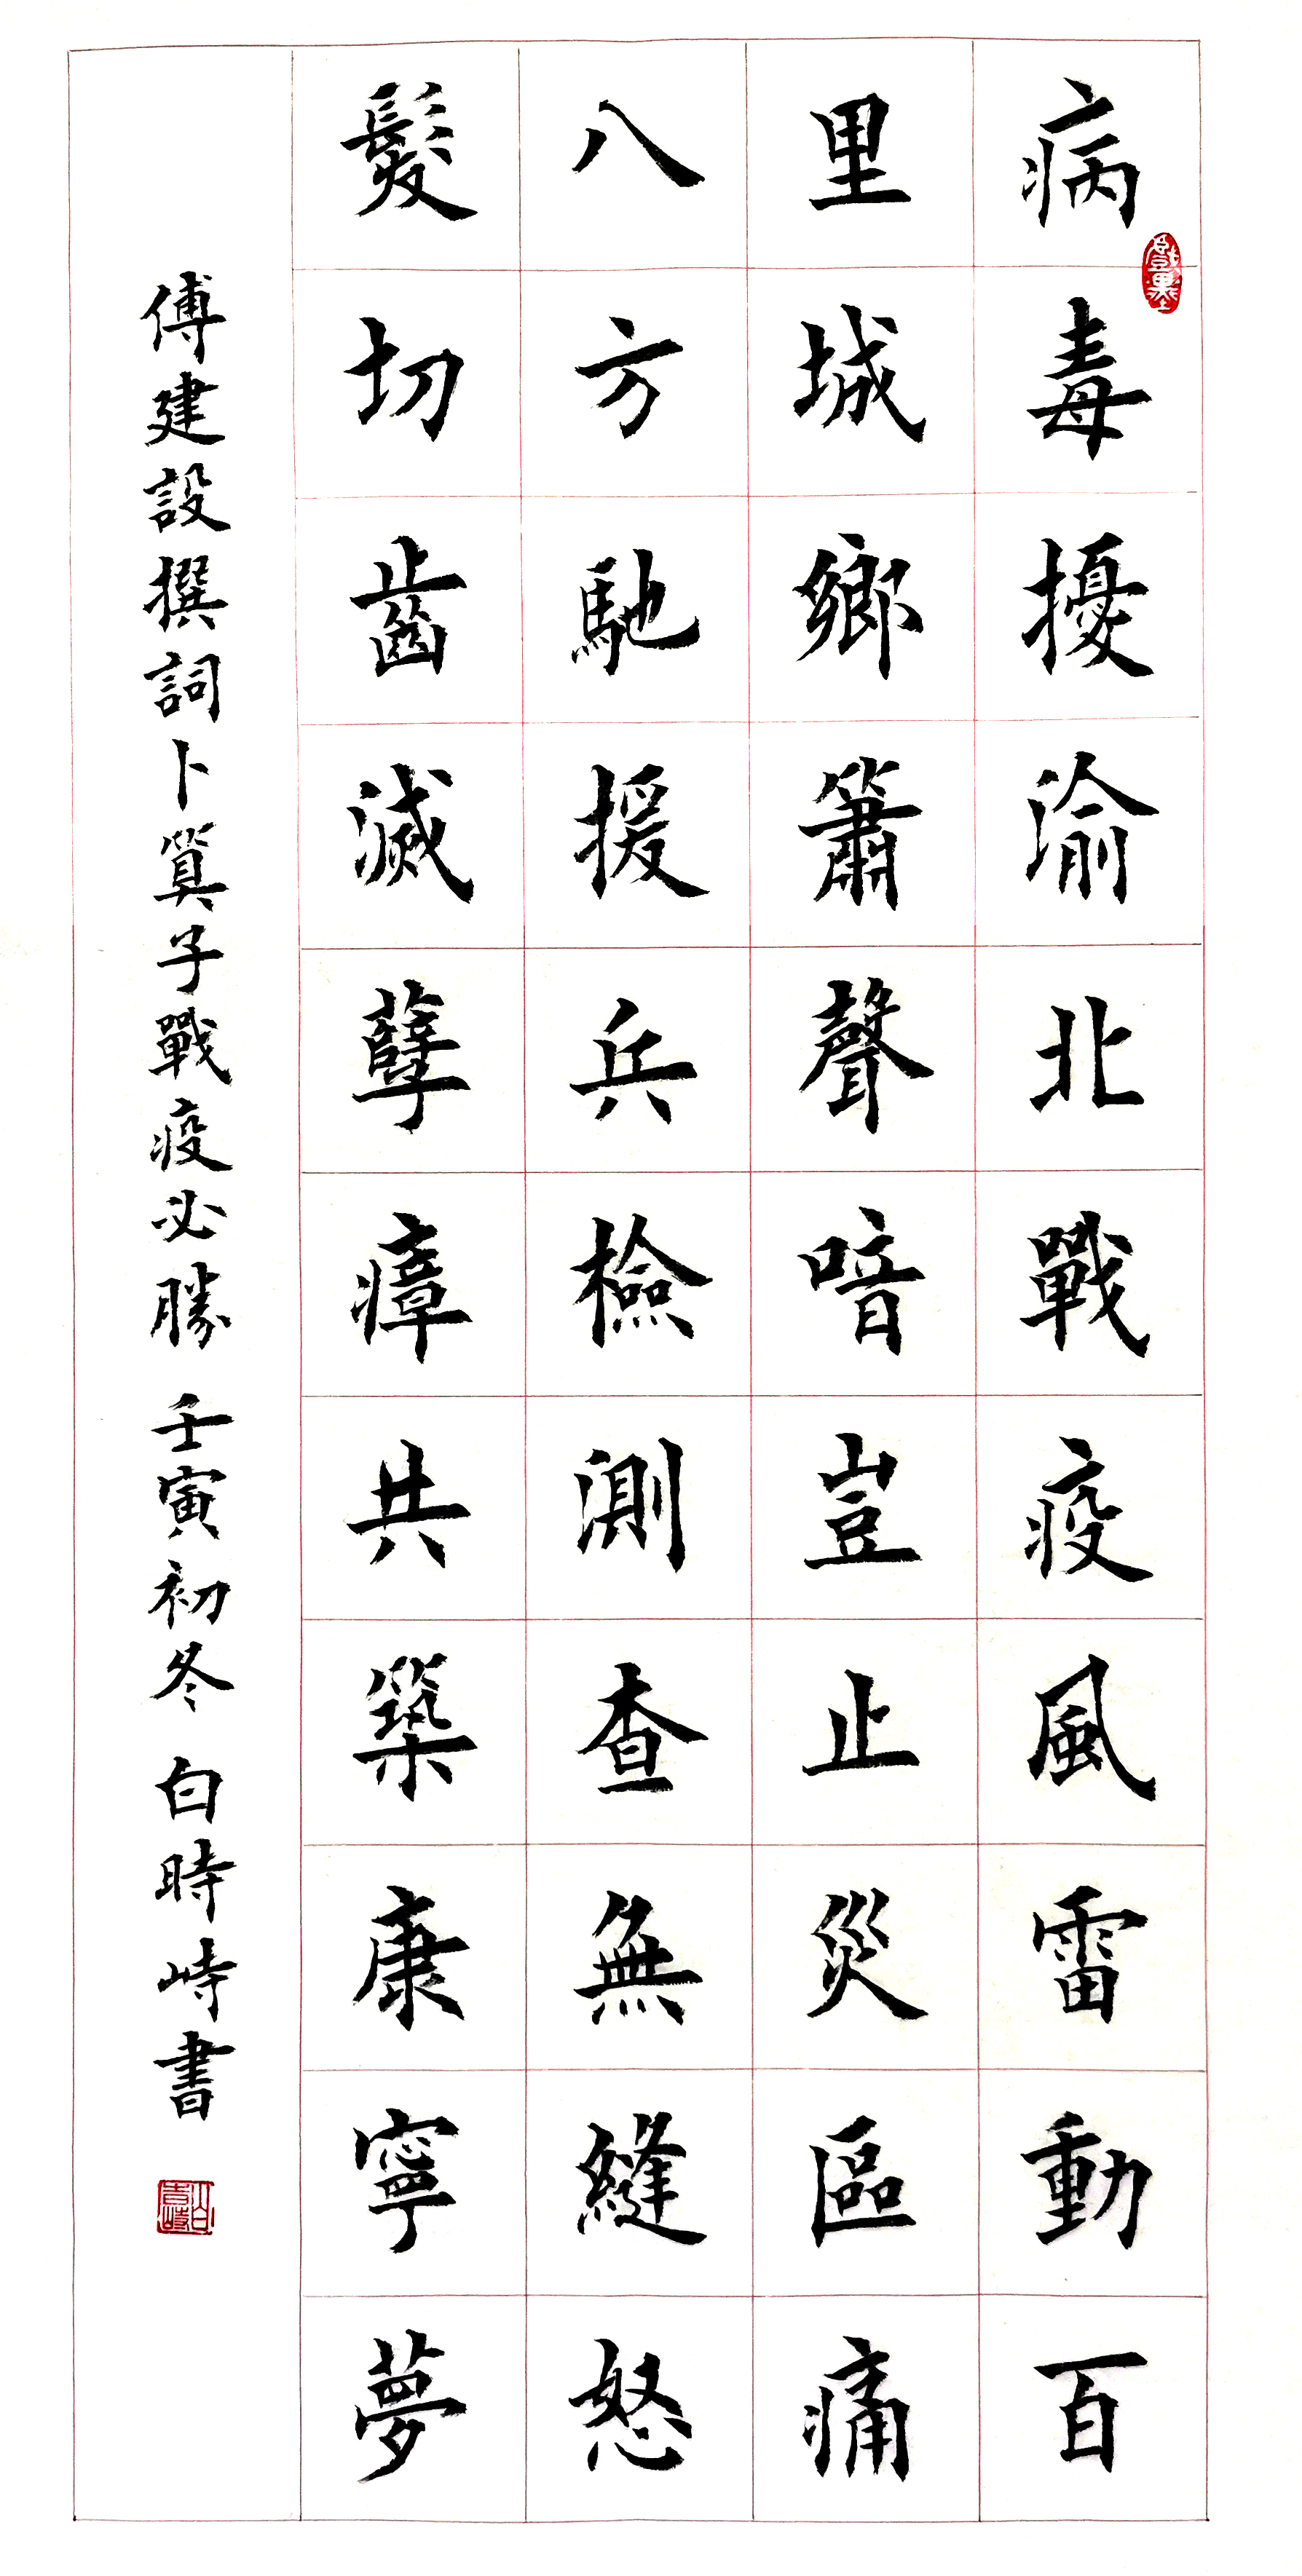 病毒擾渝北戰疫風雷動百
里城鄉簫聲喑豈止災區痛
八方馳援兵檢測查無縫怒
髮切齒滅孽瘴共築康寧夢
傅建設撰詞卜算子戰疫必勝 壬寅初冬 白時峙書